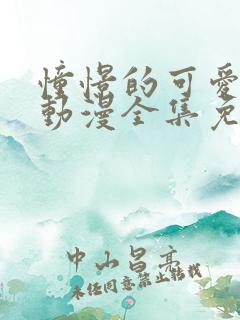 憧憬的可愛
動漫全集免
中山昌亮
未经同意禁止转载